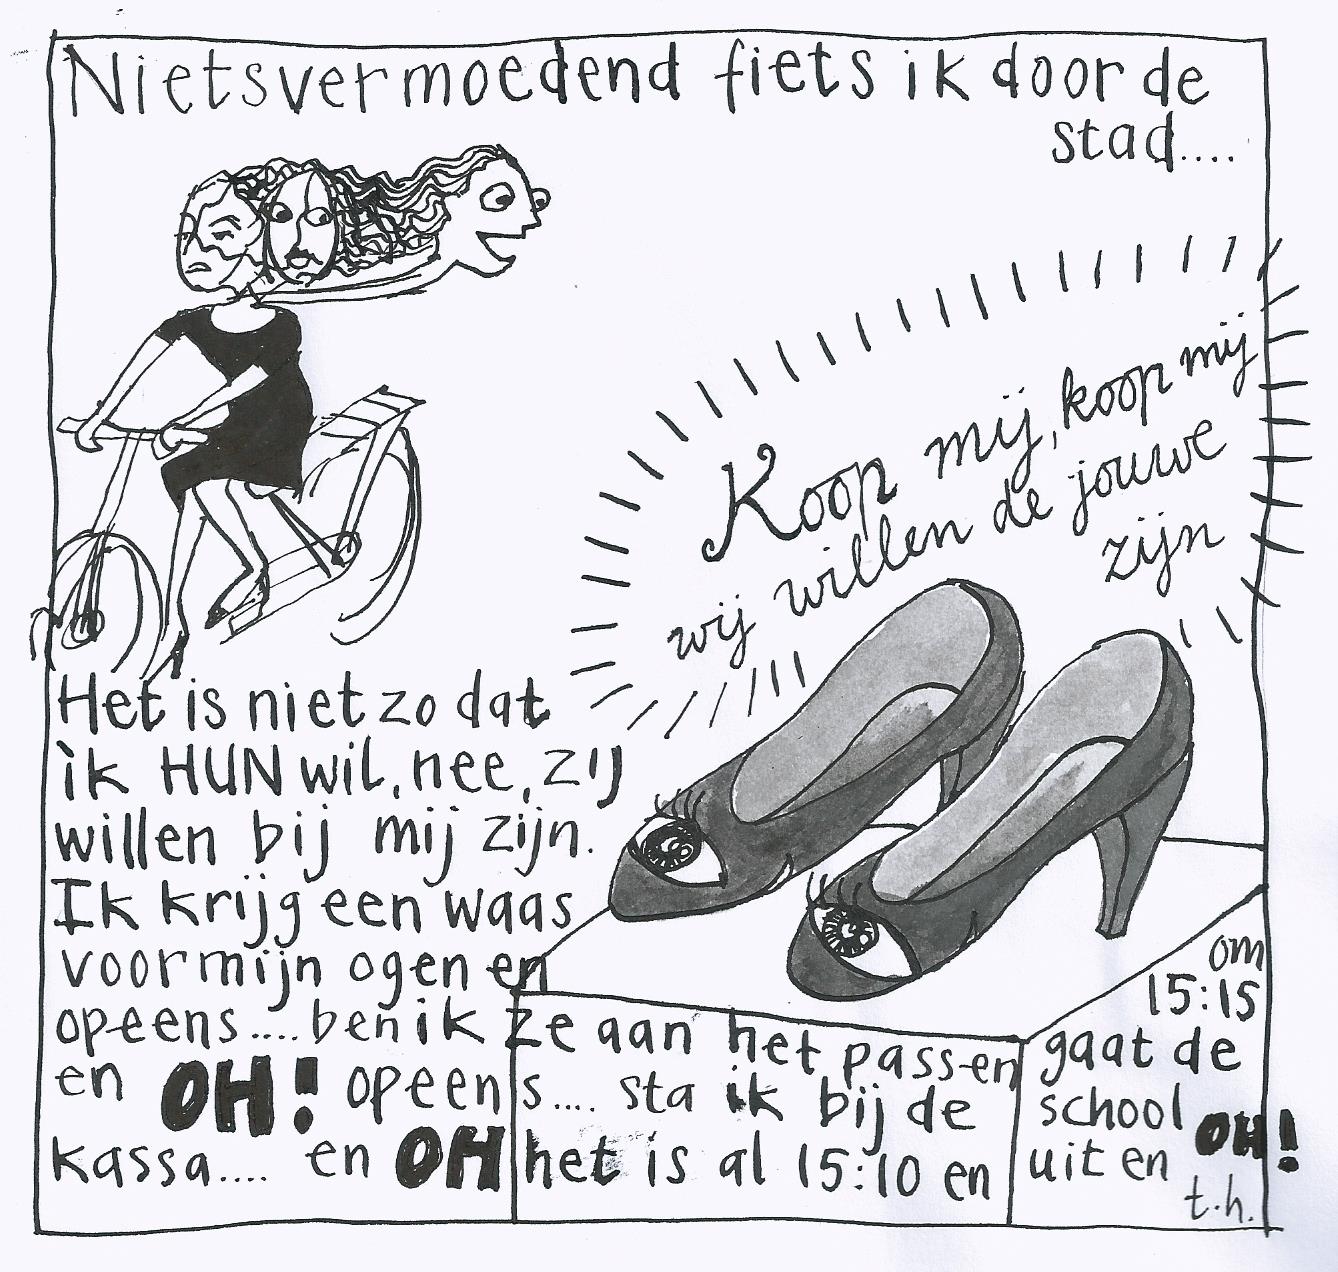 Nietsvermoedend fiets ik door de
stad....
Koop mij, koop mij
wij willen de jouwe
zijn
Het is niet zo dat
ik HUN wil, nee, zij
willen bij mij zijn.
Ik krijg een waas
voor mijn ogen en
opeens.... ben ik ze aan het passen
en OH! opeens.... sta ik bij de
kassa.... en OH het is al 15:10 en
om
15:15
gaat de
school
uit en OH!
t.h.